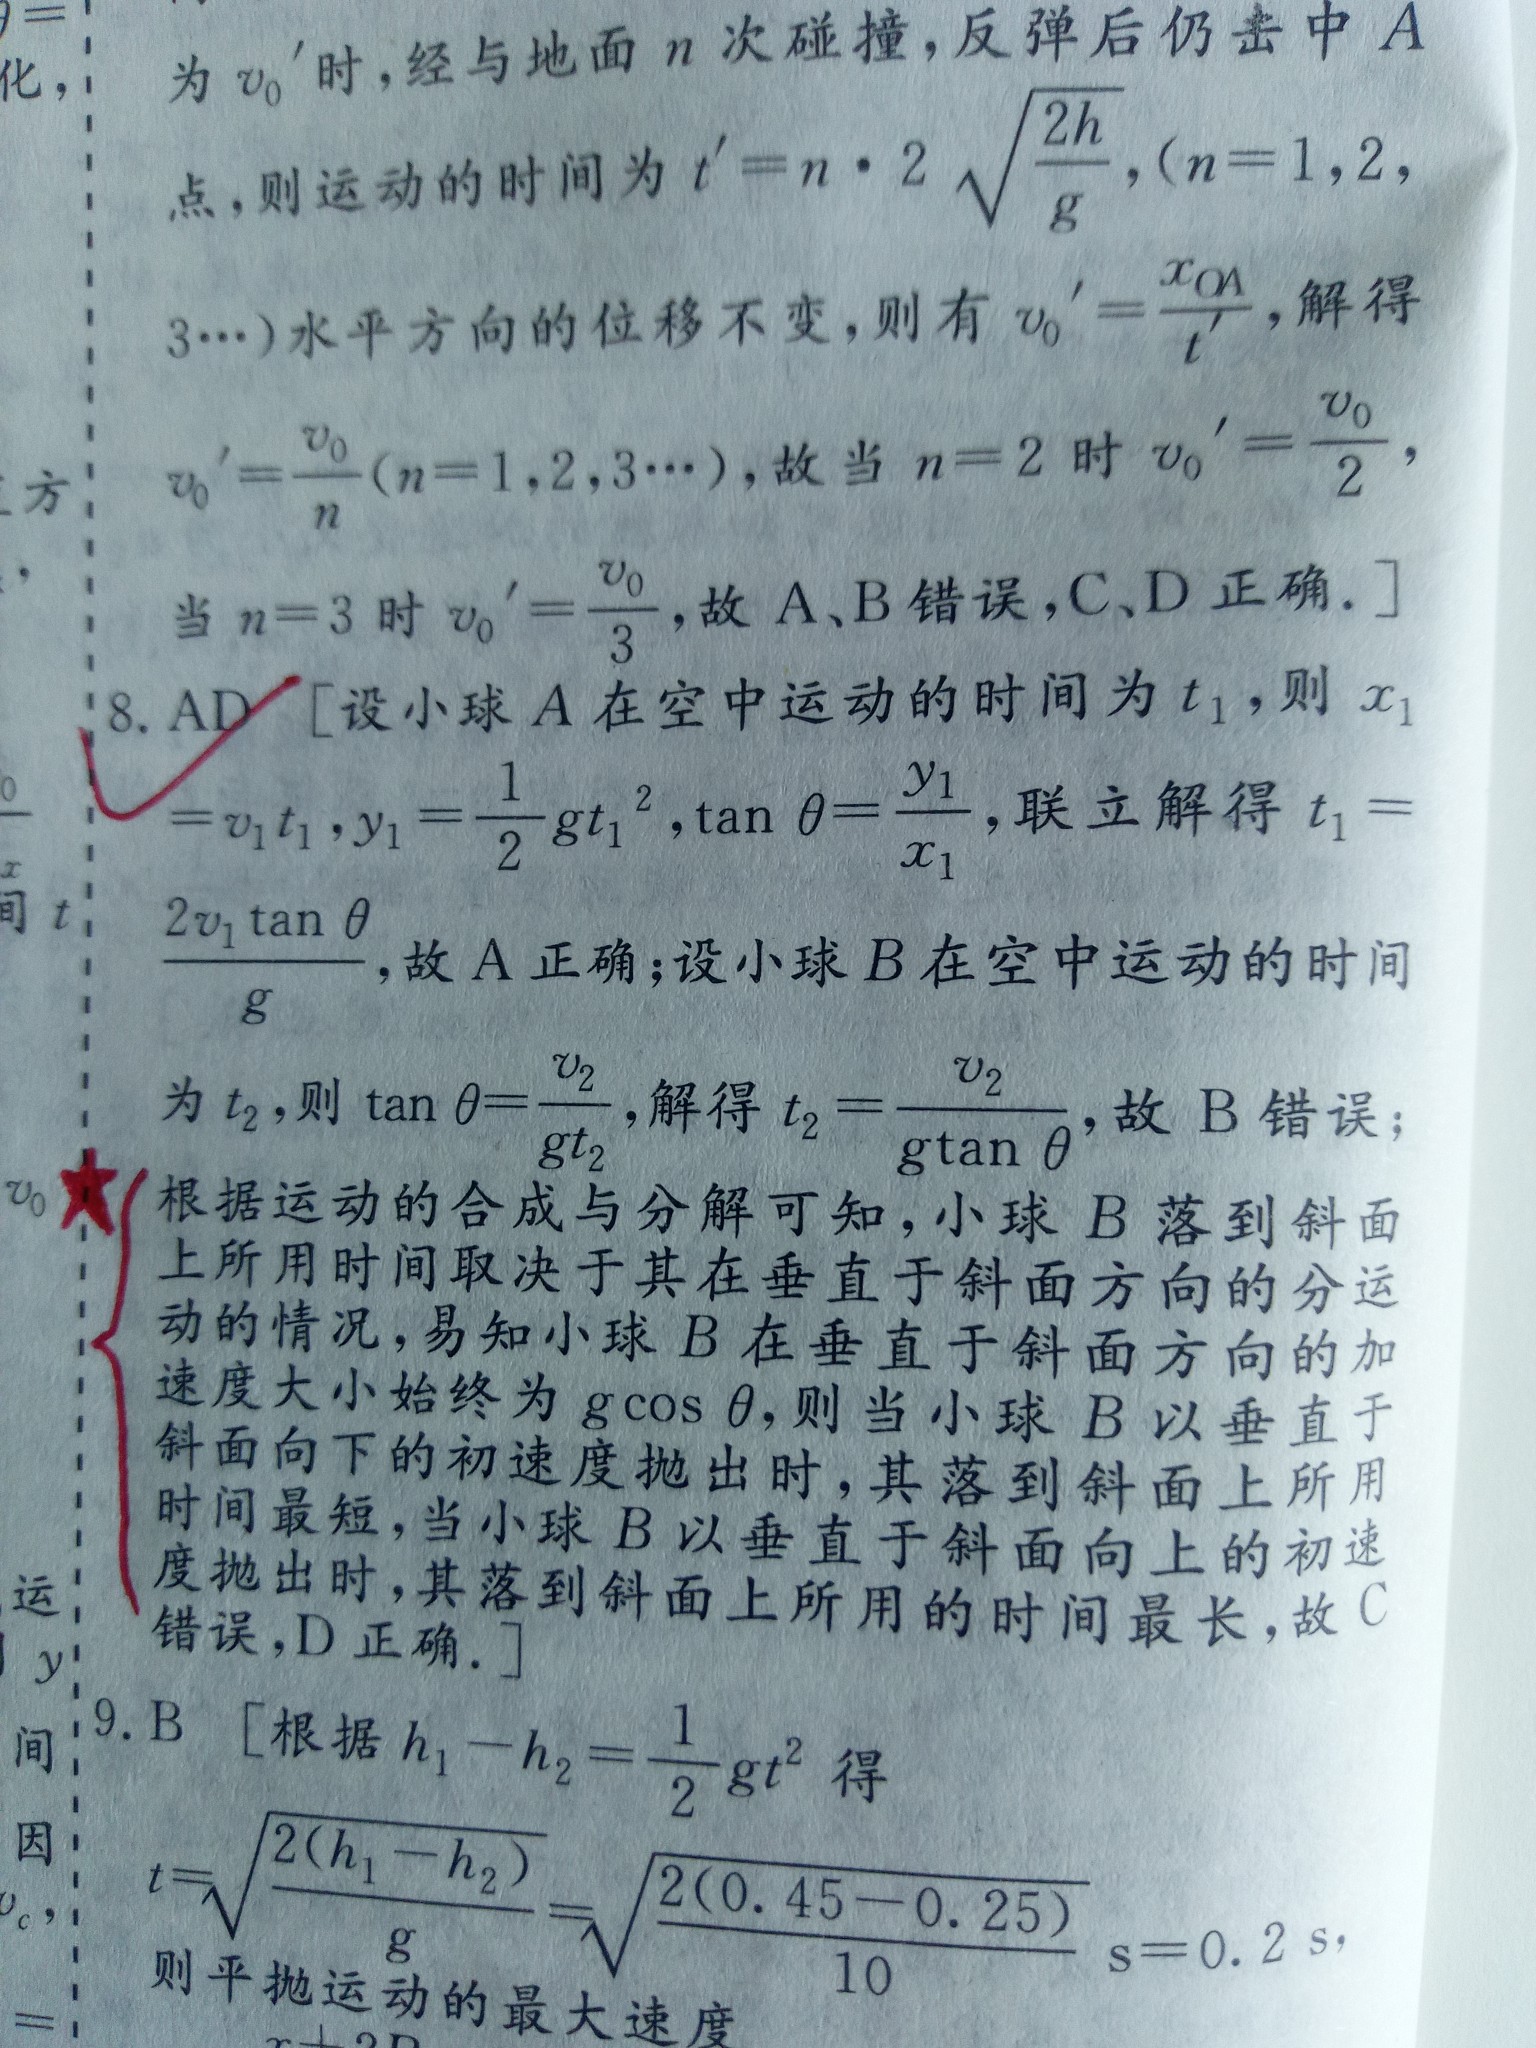 为 v₀′时,经与地面 n 次碰撞,反弹后仍击中 A
点,则运动的时间为 t′=n·2√(2h/g),(n=1,2,
3…)水平方向的位移不变,则有 v₀′=x_OA/t′,解得
v₀′=v₀/n(n=1,2,3…),故当 n=2 时 v₀′=v₀/2,
当 n=3 时 v₀′=v₀/3,故 A、B 错误,C、D 正确.]
8. AD [设小球 A 在空中运动的时间为 t₁,则 x₁
=v₁t₁,y₁=1/2gt₁²,tan θ=y₁/x₁,联立解得 t₁=
2v₁tan θ/g,故 A 正确;设小球 B 在空中运动的时间
为 t₂,则 tan θ=v₂/gt₂,解得 t₂=v₂/gtan θ,故 B 错误;
根据运动的合成与分解可知,小球 B 落到斜面
上所用时间取决于其在垂直于斜面方向的分运
动的情况,易知小球 B 在垂直于斜面方向的加
速度大小始终为 gcos θ,则当小球 B 以垂直于
斜面向下的初速度抛出时,其落到斜面上所用
时间最短,当小球 B 以垂直于斜面向上的初速
度抛出时,其落到斜面上所用的时间最长,故 C
错误,D 正确.]
9. B [根据 h₁-h₂=1/2gt² 得
t=√(2(h₁-h₂)/g)=√(2(0.45-0.25)/10) s=0.2 s,
则平抛运动的最大速度
化,
方
间 t
v₀
运
y
间
因
v_c,
=